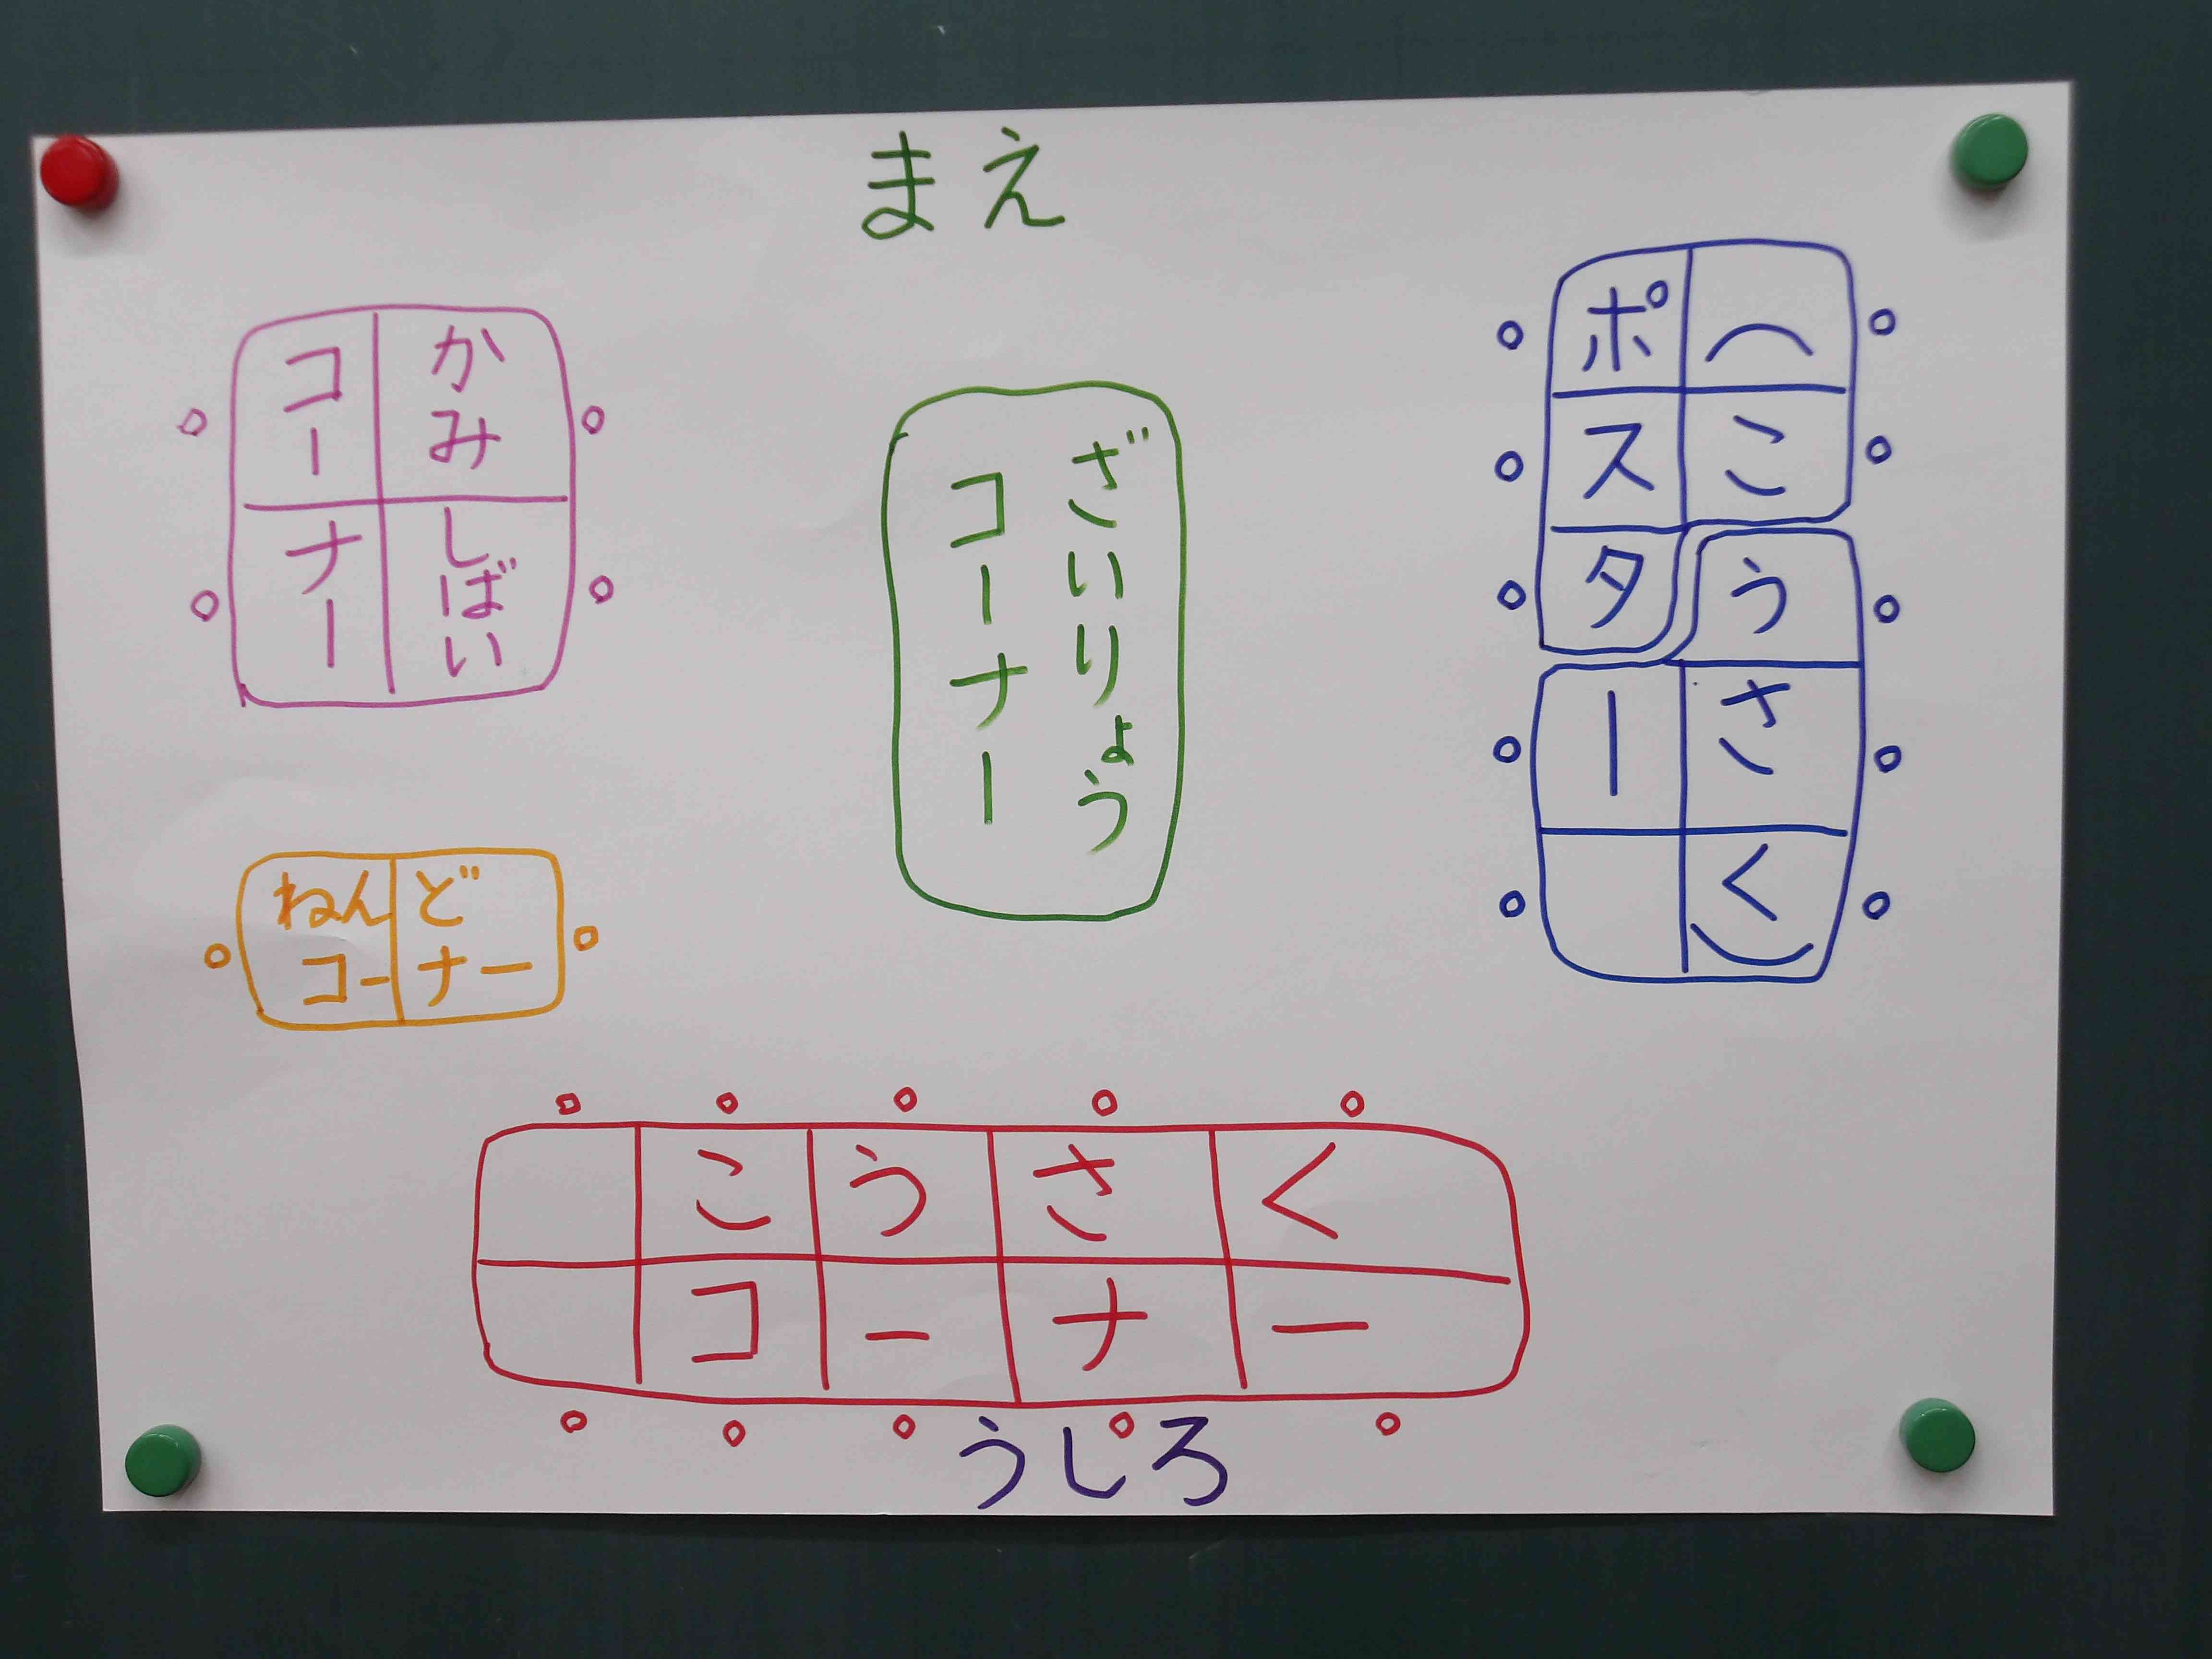 まえ
かみしばい
コーナー
ざいりょう
コーナー
（こうさく）
ポスター
ねんど
コーナー
こうさく
コーナー
うしろ